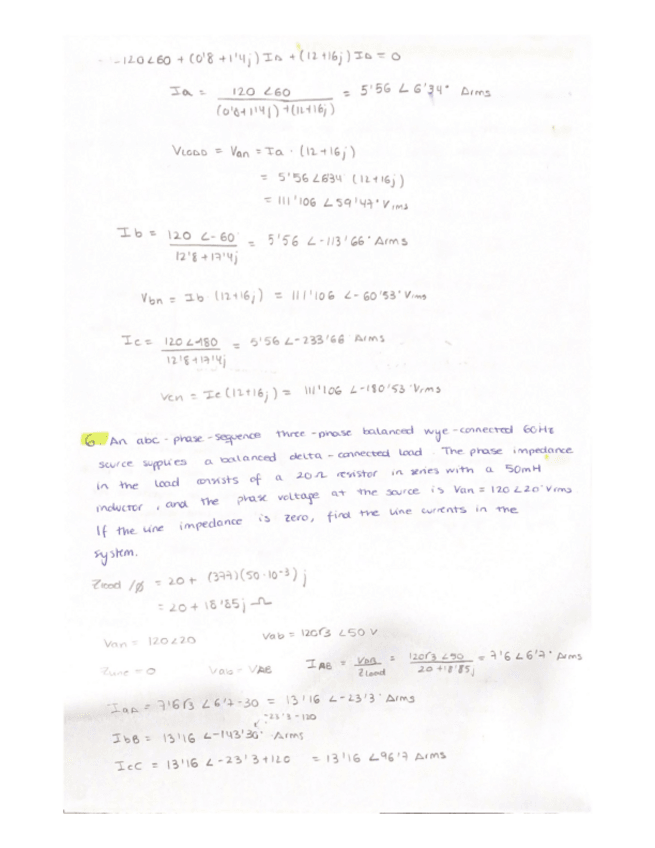 -120∠60 + (0'8 + 1'4j) Ia + (12+16j) Ia = 0
Ia = 120 ∠60 / (0'8+1'4j) + (12+16j) = 5'56 ∠ 6'34° Arms
VLOAD = Van = Ia · (12+16j)
= 5'56 ∠634 (12+16j)
= 111'106 ∠59'47° Vrms
Ib = 120 ∠-60 / 12'8+17'4j = 5'56 ∠-113'66° Arms
Vbn = Ib · (12+16j) = 111'106 ∠-60'53° Vrms
Ic = 120∠-180 / 12'8+17'4j = 5'56 ∠-233'66 Arms
Vcn = Ic (12+16j) = 111'106 ∠-180'53 Vrms
6. An abc-phase-sequence three-phase balanced wye-connected 60Hz
source supplies a balanced delta-connected load. The phase impedance
in the load consists of a 20Ω resistor in series with a 50mH
inductor, and the phase voltage at the source is Van = 120∠20° Vrms
If the line impedance is zero, find the line currents in the
system.
Zload/ø = 20 + (377)(50·10-3) j
= 20 + 18'85j Ω
Van = 120∠20 Vab = 120√3 ∠50 V
Zline = 0 Vab = VAB IAB = VAB / Zload = 120√3 ∠50 / 20+18'85j = 7'6 ∠6'7° Arms
IaA = 7'6√3 ∠6'7-30 = 13'16 ∠-23'3° Arms
-23'3-120
IbB = 13'16 ∠-143'30° Arms
IcC = 13'16 ∠-23'3+120 = 13'16 ∠96'7 Arms